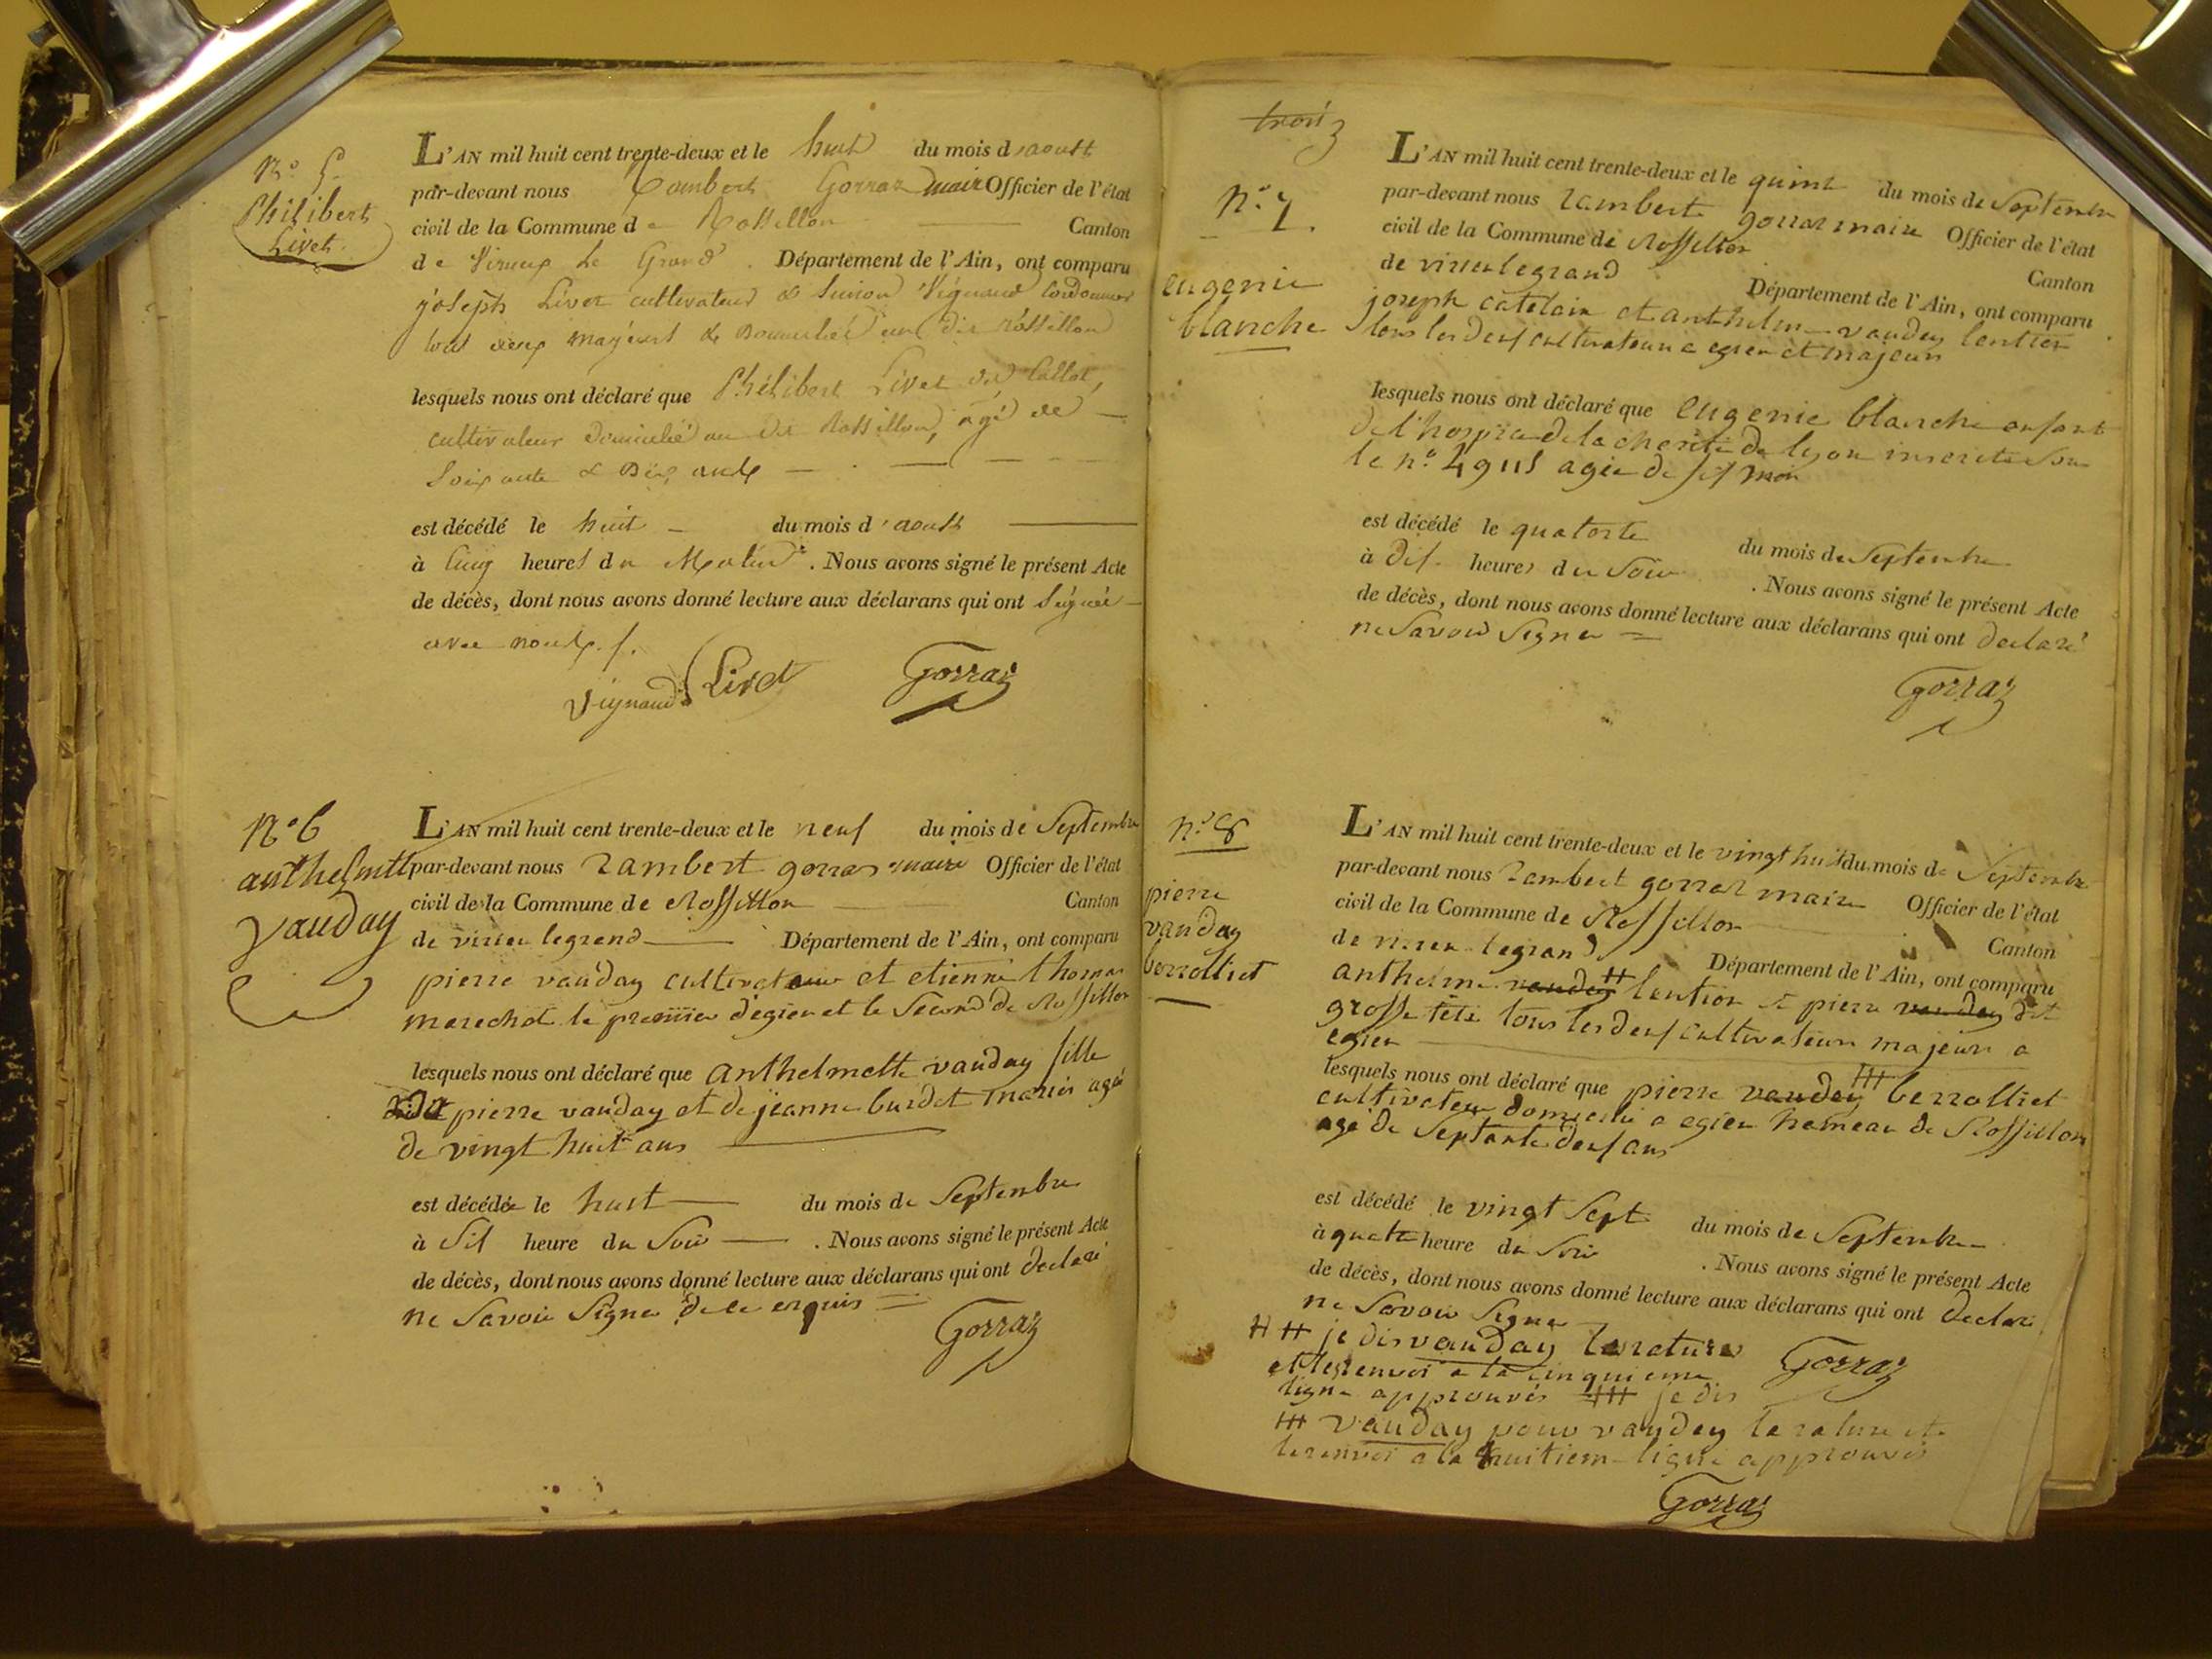 N.° 5.
Philibert
Livet.
L'AN mil huit cent trente-deux et le huit du mois d'aoust
par-devant nous Lambert Gorraz maire Officier de l'état
civil de la Commune de Rossillon Canton
de Virieux Le Grand. Département de l'Ain, ont comparu
joseph Livet cultivateur & Simon Vignaud cordonnier
tous deux majeurs & Domiciliés au dit rossillon
lesquels nous ont déclaré que Philibert Livet dit Callot,
cultivateur domicilié au dit Rossillon, agé de
Soixante & Dix ans
est décédé le huit du mois d'aoust
à Cinq heures du Matin. Nous avons signé le présent Acte
de décès, dont nous avons donné lecture aux déclarans qui ont Signés
avec nous.
Vignaud Livet Gorraz
N° 6
anthelmette
vauday
L'AN mil huit cent trente-deux et le neuf du mois de Septembre
par-devant nous Lambert gorraz maire Officier de l'état
civil de la Commune de Rossillon Canton
de virieu legrand Département de l'Ain, ont comparu
pierre vauday cultivateur et etienne thomas
marechat le premier d'egieu et le Second de Rossillon
lesquels nous ont déclaré que anthelmette vauday fille
pierre vauday et de jeanne burdet mariés agé
de vingt huit ans
est décédée le huit du mois de Septembre
à Six heure du Soir. Nous avons signé le présent Acte
de décès, dont nous avons donné lecture aux déclarans qui ont declaré
ne Savoir Signer de ce enquis
Gorraz
trois
N.° 7.
eugenie
blanche
L'AN mil huit cent trente-deux et le quinz du mois de Septembre
par-devant nous Lambert gorraz maire Officier de l'état
civil de la Commune de Rossillon Canton
de virieu legrand Département de l'Ain, ont comparu
joseph catelain et anthelme vauday lention
tous les deux cultivateurs a egieu et majeurs
lesquels nous ont déclaré que eugenie blanche enfant
de l'hospice de la cherité de lyon inscrite Sou
le n.° agée de Six mois
est décédé le quatorze du mois de Septembre
à dix heures du Soir. Nous avons signé le présent Acte
de décès, dont nous avons donné lecture aux déclarans qui ont declaré
ne Savoir Signer
Gorraz
n.° 8
pierre
vauday
berrolliet
L'AN mil huit cent trente-deux et le vingt huit du mois de Septembre
par-devant nous Lambert gorraz maire Officier de l'état
civil de la Commune de Rossillon Canton
de virieu legrand Département de l'Ain, ont comparu
anthelme vaudey # lention et pierre vaudey dit
grosse tête tous les deux cultivateurs majeurs a
egieu
lesquels nous ont déclaré que pierre vaudey berrolliet
cultivateur domicilié a egieu hameau de Rossillon
agé de Septante deux ans
est décédé le vingt Sept du mois de Septembre
à quatre heure du Soir. Nous avons signé le présent Acte
de décès, dont nous avons donné lecture aux déclarans qui ont declaré
ne Savoir Signer
# # je dis vauday la rature
et le renvoi a la cinquieme
ligne approuvés je dis
vauday pour vaudey la rature et
le renvoi a la huitieme ligne approuvés
Gorraz
Gorraz